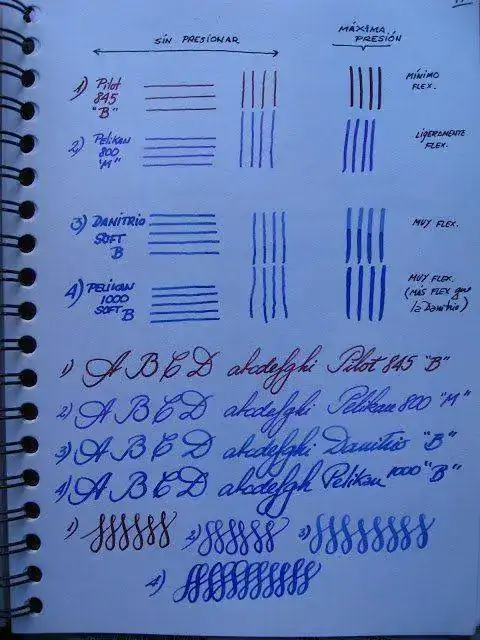 SIN PRESIONAR
MÁXIMA
PRESIÓN
1) Pilot
845
"B"
MÍNIMO
FLEX.
2) PELIKAN
800
"M"
LIGERAMENTE
FLEX.
3) DANITRIO
SOFT
B
MUY FLEX.
4) PELIKAN
1000
SOFT
B
MUY FLEX.
(MÁS FLEX que
la Danitrio)
1) A B C D abcdefghi Pilot 845 "B"
2) A B C D abcdefghi Pelikan 800 "M"
3) A B C D abcdefghi Danitrio "B"
4) A B C D abcdefgh Pelikan 1000 "B"
1)
2)
3)
4)